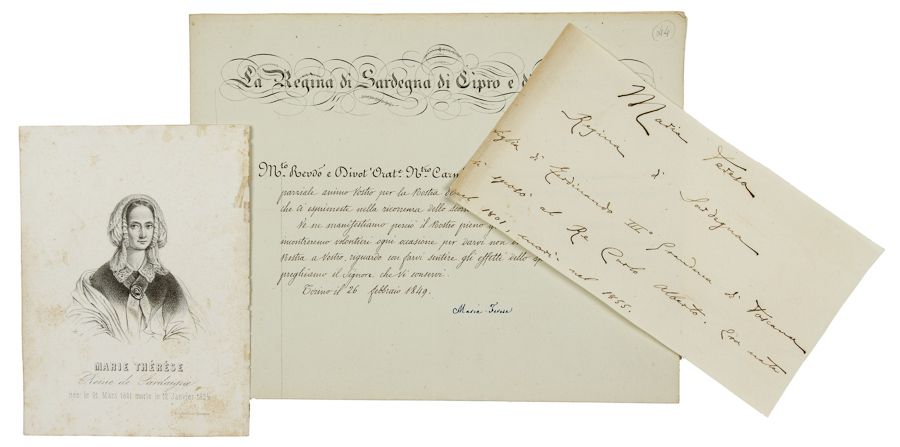 La Regina di Sardegna di Cipro e di
M.to Revdo e Divot' Orat.e N.tro Carm
parziale animo Vostro per la Nostra
che ci esprimeste nella ricorrenza dello scor
Ve ne manifestiamo perciò il Nostro pieno
incontreremo volontieri ogni occasione per darvi
Nostra a Vostro riguardo con farvi sentire gli effetti dello
preghiamo il Signore che Vi conservi.
Torino il 26 febbraio 1849.
Maria Teresa
MARIE THÉRÈSE
Reine de Sardaigne
née le 21 Mars 1801 morte le 12 Janvier 1855
Maria Teresa
Regina di Sardegna
figlia di Ferdinando III° Granduca di Toscana
si sposò al Re Carlo Alberto. Era nata
nel 1801, morì nel 1855.